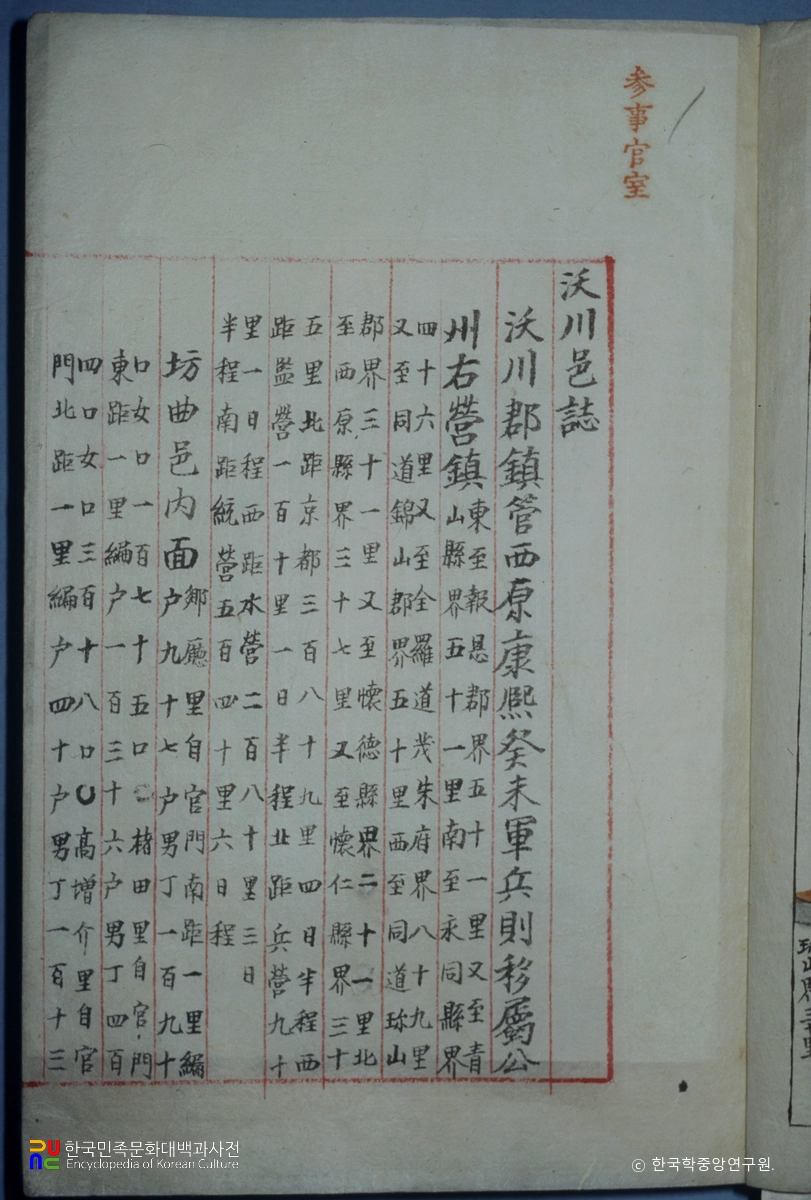 参事官室
沃川邑誌
沃川郡鎮管西原康熙癸未軍兵則移屬公
州右營鎮
東至報恩郡界五十一里又至青
山縣界五十一里南至永同縣界
四十六里又至全羅道茂朱府界八十九里
又至同道錦山郡界五十里西至同道珎山
郡界三十一里又至懷德縣界二十一里北
至西原縣界三十七里又至懷仁縣界三十
五里北距京都三百八十九里四日半程西
距監營一百十里一日半程北距兵營九十
里一日程西距水營二百八十里三日
半程南距統營五百四十里六日程
坊曲邑内面
鄕廳里自官門南距一里編
户九十七户男丁一百九十
口女口一百七十五口〇楮田里自官門
東距一里編户一百三十六户男丁四百
四口女口三百十八口〇高增介里自官
門北距一里編户四十户男丁一百十三
한국민족문화대백과사전
Encyclopedia of Korean Culture
ⓒ 한국학중앙연구원.